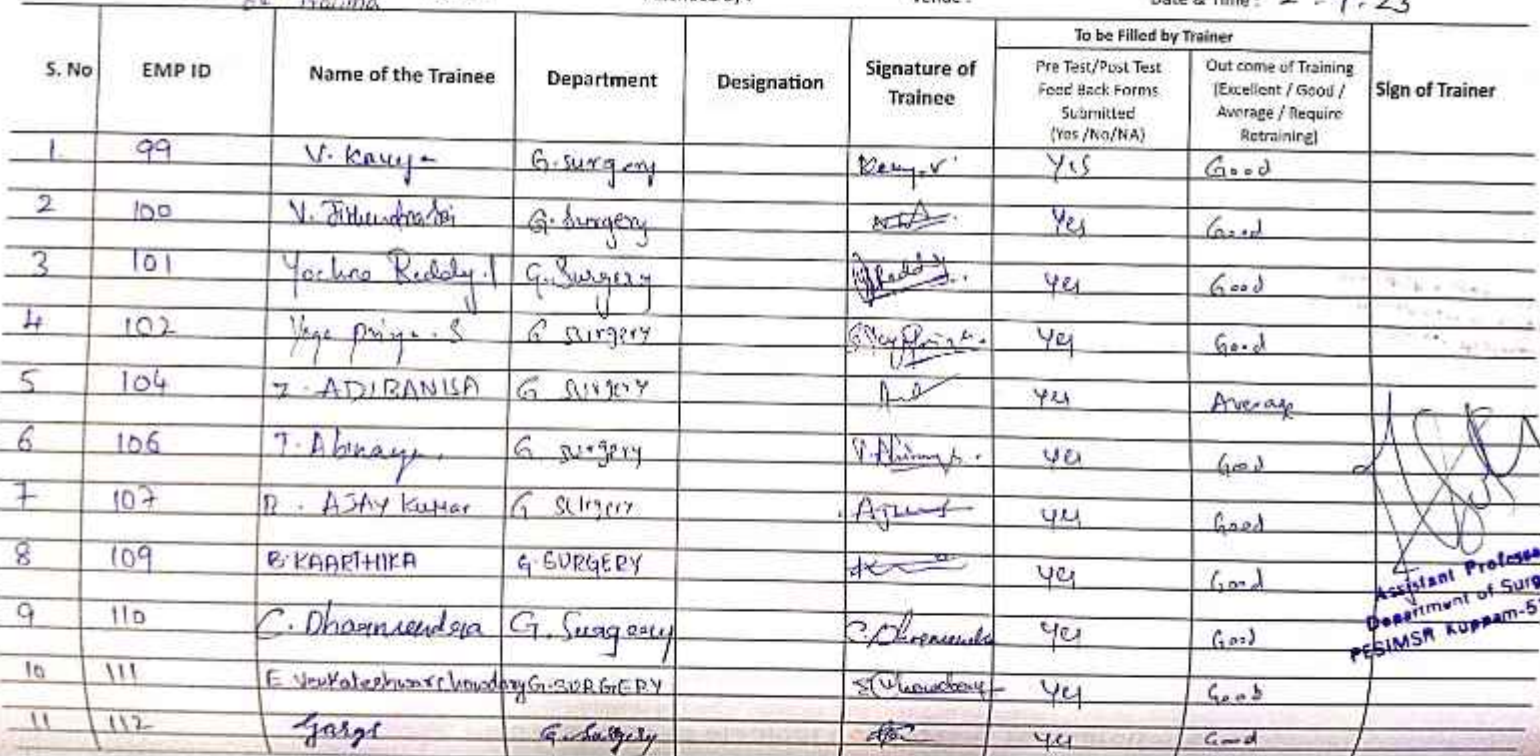 Trauma Date & Time : 2 . 1 . 23
To be Filled by Trainer
S. No EMP ID Name of the Trainee Department Designation Signature of Trainee Pre Test/Post Test Feed Back Forms Submitted (Yes /No/NA) Out come of Training (Excellent / Good / Average / Require Retraining) Sign of Trainer
1. 99 V. Kavya G. surgery Kavya.V Yes Good
2 100 V. G. Surgery Yes Good
3 101 Reddy. G. Surgery Reddy. Yes Good
4 102 Priya. S G surgery Yes Good
5 104 ADIBANISA G surgery Yes Average
6 106 T. Abinaya. G surgery Yes Good
7 107 R. AJAY Kumar G surgery Yes Good
8 109 B. KAARTHIKA G. SURGERY Yes Good
9 110 C. Dharmendra G. Surgery C. Dharmendra Yes Good
10 111 E Venkateshwar Chowdary G. SURGERY Chowdary Yes Good
11 112 Gargi G. Surgery Yes Good
Assistant Profess
Department of Surg
PESIMSR Kuppam-5